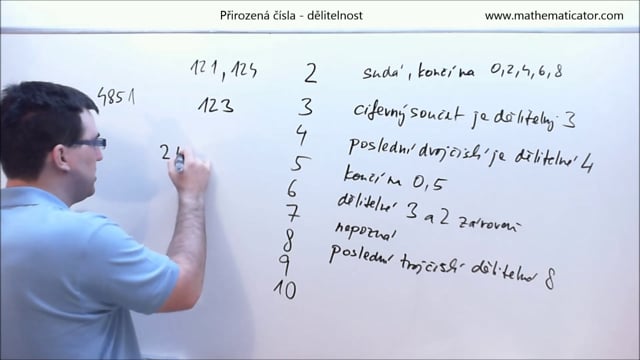 Přirozená čísla - dělitelnost
www.mathematicator.com
121, 124
4851
123
2 sudá, končí na 0,2,4,6,8
3 ciferný součet je dělitelný 3
4 poslední dvojčíslí je dělitelné 4
5 končí na 0,5
6 dělitelné 3 a 2 zároveň
7 nepozná
8 poslední trojčíslí dělitelné 8
9
10